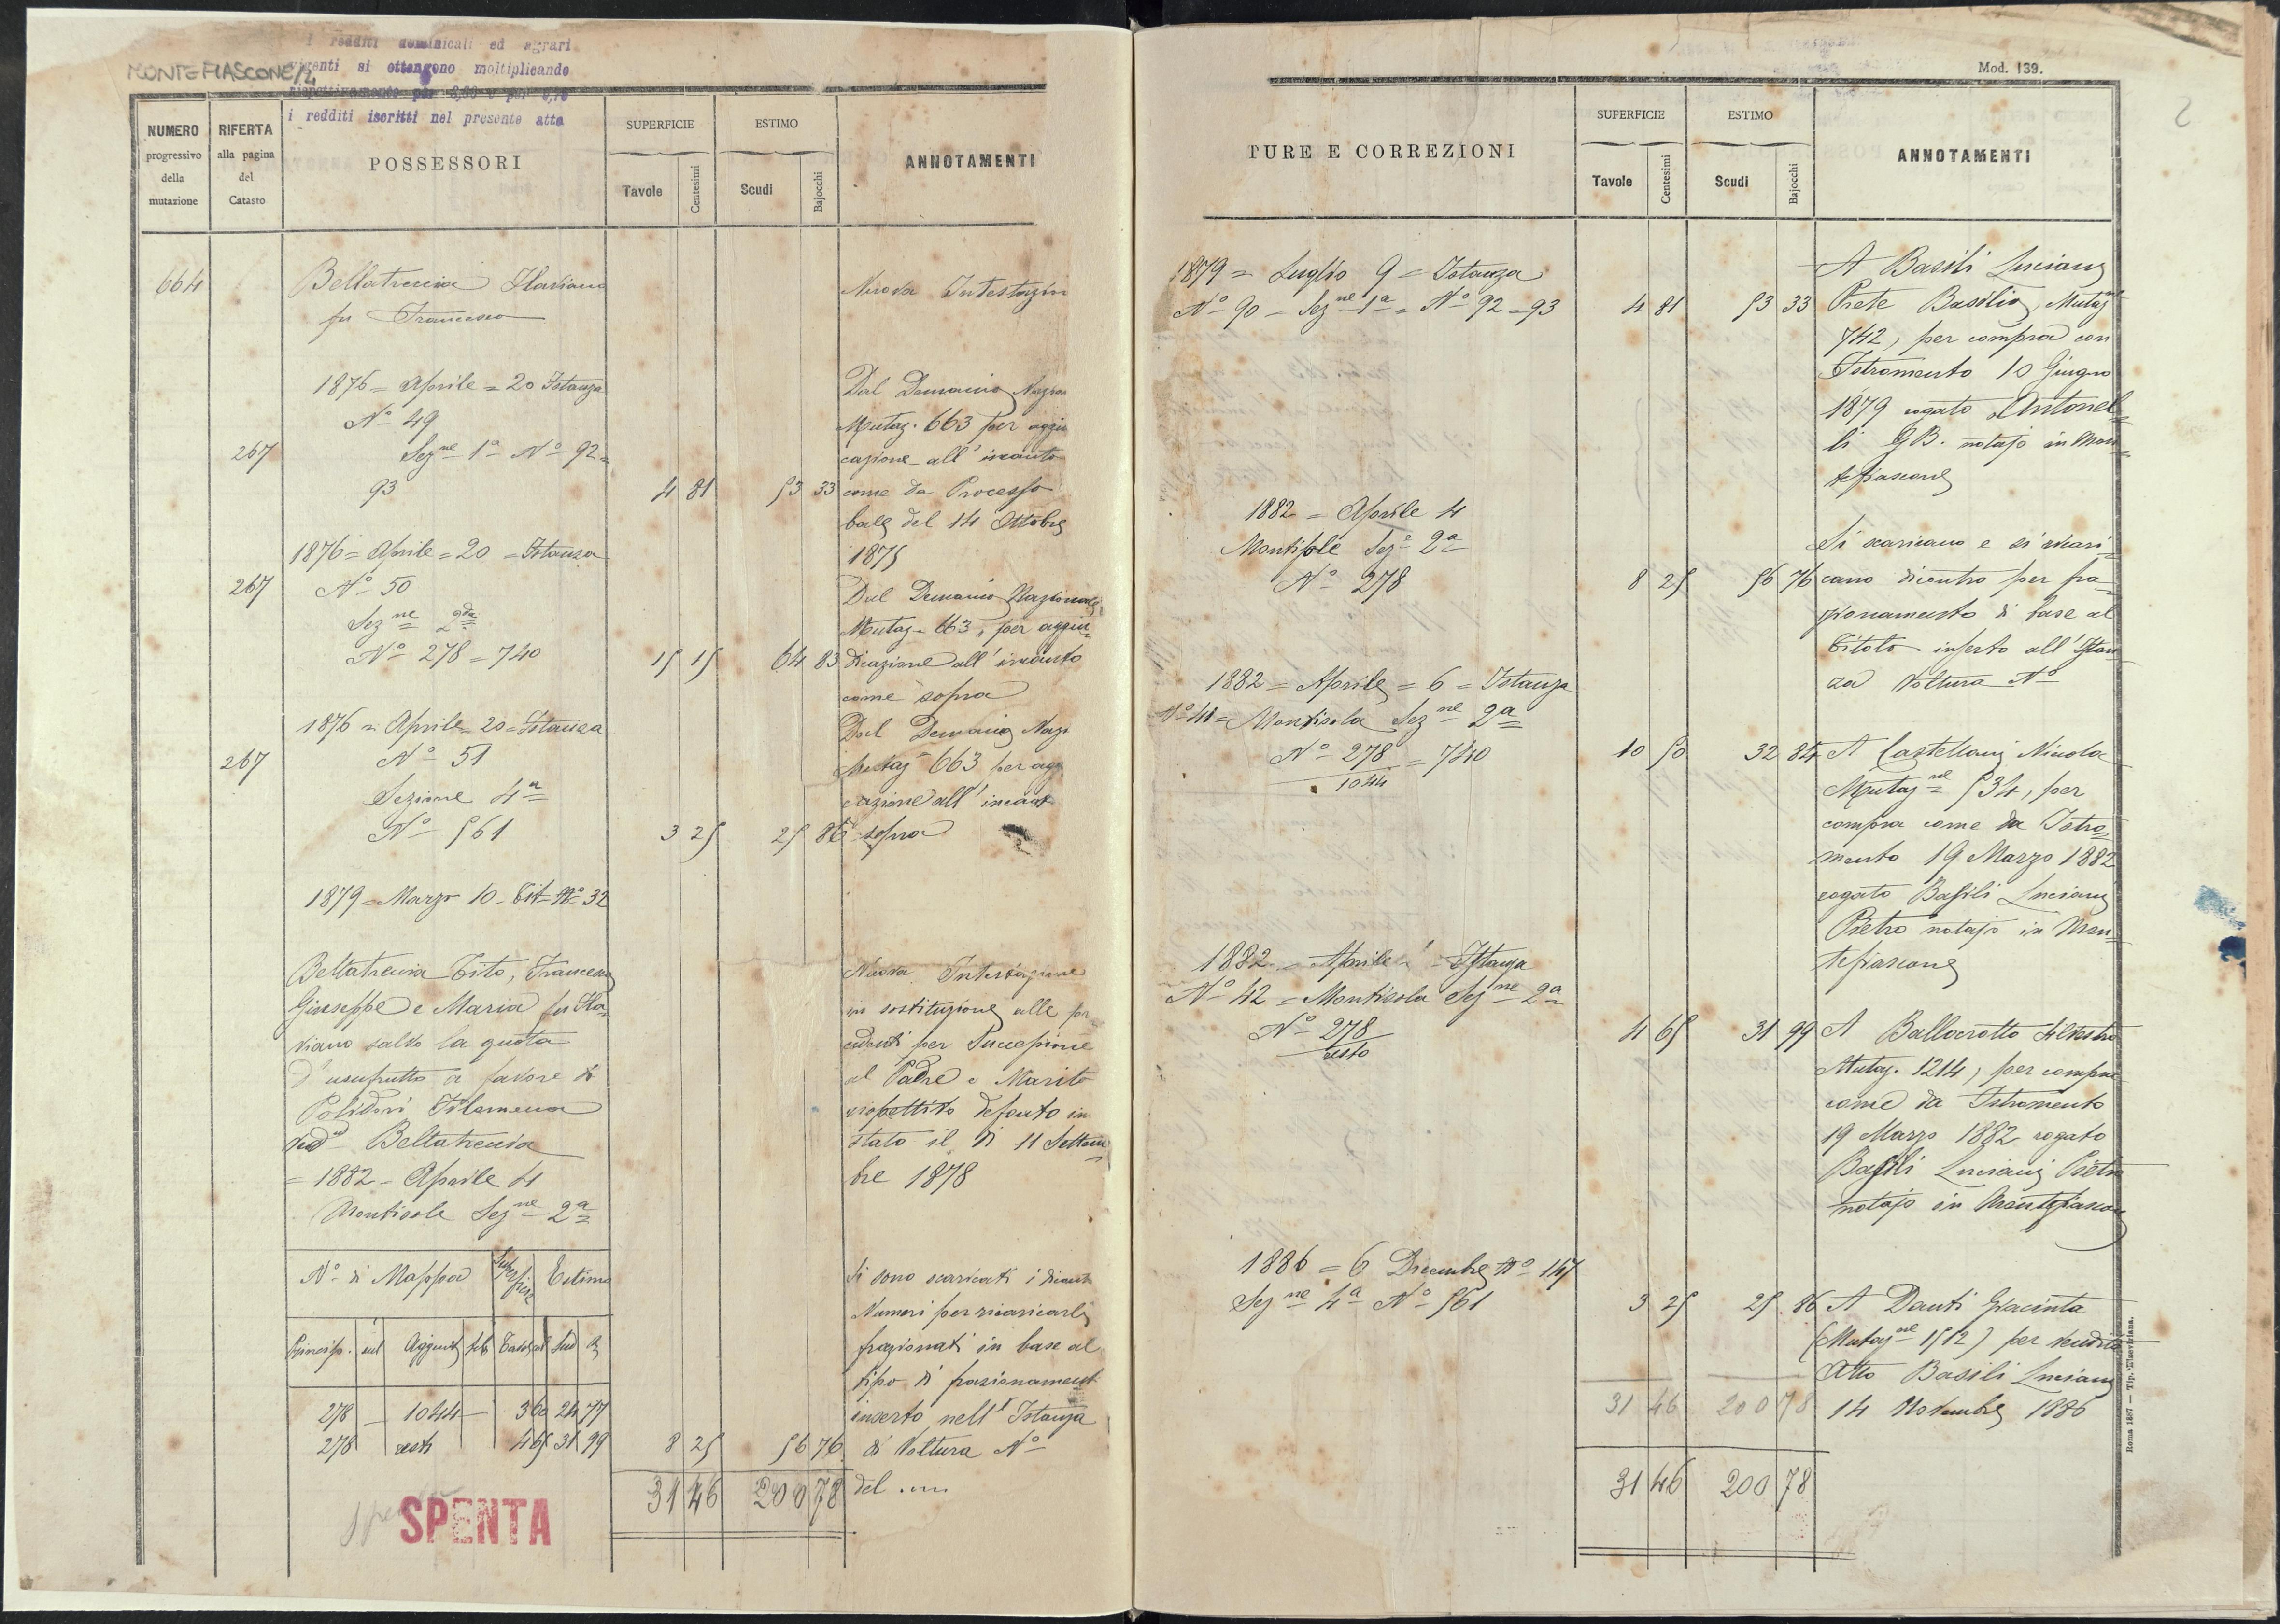 MONTEFIASCONE/2
I redditi dominicali ed agrari
vigenti si ottengono moltiplicando
rispettivamente per
i redditi iscritti nel presente atto
NUMERO progressivo della mutazione
RIFERTA alla pagina del Catasto
POSSESSORI
SUPERFICIE
Tavole Centesimi
ESTIMO
Scudi Bajocchi
ANNOTAMENTI
664 Bellatreccia Flaviano Nuova Intestazin
fu Francesco
1876 = Aprile = 20 Istanza Dal Demanio Nazio
Nº 49 Mutaz. 663 per aggiu
267 Sezne 1ª Nº 92= cazione all' incanto
93 4 81 53 33 come da Processo
bale del 14 Ottobre
1876 = Aprile = 20 = Istanza 1875
267 Nº 50 Dal Demanio Nazionale
Sezne 2da Mutaz. 663, per aggiu=
Nº 278 = 740 15 15 64 83 dicazione all' incanto
come sopra
1876 = Aprile = 20 = Istanza Dal Demanio Nazi
267 Nº 51 Mutazne 663 per agg
Sezione 4ª cazione all' incant
Nº 561 3 25 25 86 sopra
1879 = Marzo 10 = Tit= Nº 32
Bellatreccia Tito, Francesco Nuova Intestazione
Giuseppe e Maria fu Fla= in sostituzione alle pre
viano salvo la quota cedenti per Successione
d'usufrutto a favore di al Padre e Marito
Polidori Filomena rispettivo defunto in
vedª Bellatreccia stato il dì 11 Settem
= 1882 - Aprile 4 bre 1878
Montisola Sezne 2ª
Nº di Mappa Superficie Estimo Si sono scaricati i dicont
Numeri per ricaricarli
Princip. sub Aggiunt sub Tavol cent Scud B frazionati in base al
tipo di frazionament
278 - 1044 - 3 60 24 77 inserto nell' Istanza
278 resto 4 65 31 99 8 25 56 76 di Voltura Nº
31 46 200 78 del
spenta
SPENTA
Mod. 139.
2
TURE E CORREZIONI
SUPERFICIE
Tavole Centesimi
ESTIMO
Scudi Bajocchi
ANNOTAMENTI
1879 = Luglio 9 = Istanza A Basili Luciani
Nº 90 = Sezne 1ª = Nº 92 = 93 4 81 53 33 Prete Basilio, Mutazne
742, per compra con
Istromento 10 Giugno
1879 rogato Antonel=
li GB. notajo in Mon=
tefiascone
1882 = Aprile 4
Montisole Seze 2ª Si scaricano e si ricari=
Nº 278 8 25 56 76 cano dicontro per fra=
zionamento di base al
titolo inserto all' Istan
za Voltura Nº
1882 = Aprile = 6 = Istanza
Nº 41 = Montisola Sezne 2ª
Nº 278/1044 = 740 10 50 32 84 A Castellani Nicola
Mutazne 534, per
compra come da Istro=
mento 19 Marzo 1882
rogato Basili Luciani
Pietro notajo in Mon=
tefiascone
1882 = Aprile = Istanza
Nº 42 = Montisola Sezne 2ª
Nº 278/resto 4 65 31 99 A Ballarotto Silvestro
Mutaz. 1214, per compra
come da Istromento
19 Marzo 1882 rogato
Basili Luciani Pietro
notajo in Montefiascone
1886 = 6 Dicembre Nº 147
Sezne 4ª Nº 561 3 25 25 86 A Danti Giacinta
(Mutazne 1512) per vendita
Atto Basili Luciani
31 46 200 78 14 Novembre 1886
31 46 200 78
Roma 1887 — Tip. Elzeviriana.